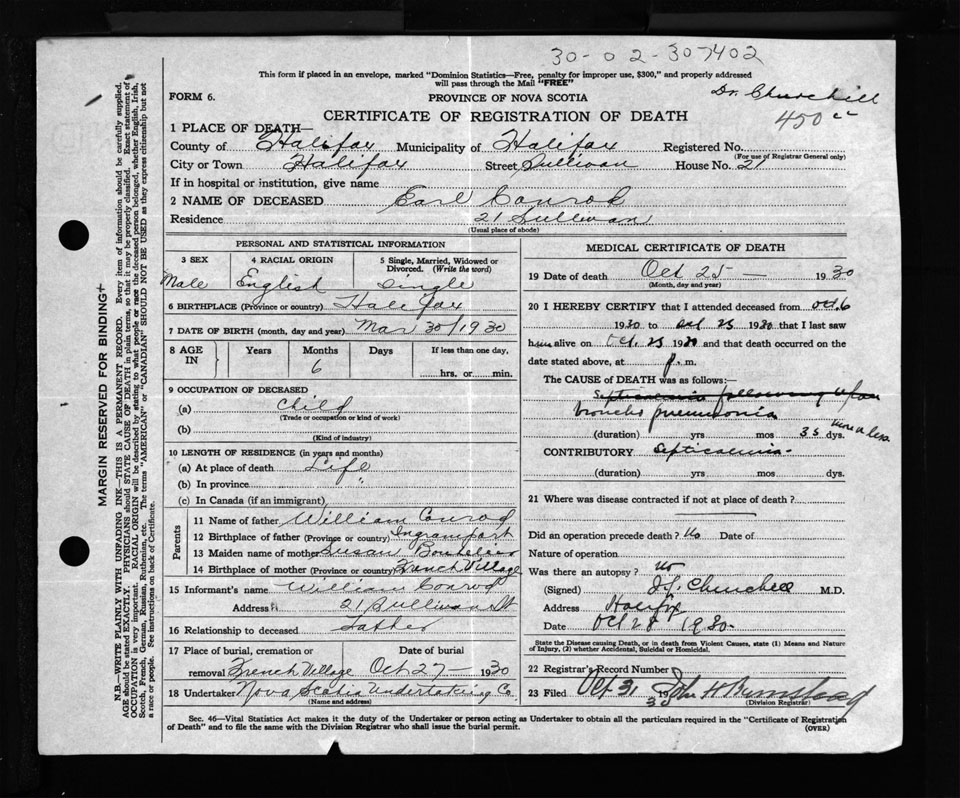 30-02-307402
This form if placed in an envelope, marked "Dominion Statistics—Free, penalty for improper use, $300," and properly addressed
will pass through the Mail "FREE"
FORM 6.
PROVINCE OF NOVA SCOTIA
Dr. Churchill
CERTIFICATE OF REGISTRATION OF DEATH
450
1 PLACE OF DEATH—
County of Halifax Municipality of Halifax Registered No.
(For use of Registrar General only)
City or Town Halifax Street Sullivan House No. 21
If in hospital or institution, give name
2 NAME OF DECEASED Earl Conrod
Residence 21 Sullivan
(Usual place of abode)
PERSONAL AND STATISTICAL INFORMATION
3 SEX 4 RACIAL ORIGIN 5 Single, Married, Widowed or
Divorced. (Write the word)
Male English Single
6 BIRTHPLACE (Province or country) Halifax
7 DATE OF BIRTH (month, day and year) Mar 30/1930
8 AGE IN Years Months Days If less than one day,
6 hrs. or min.
9 OCCUPATION OF DECEASED
(a) Child
(Trade or occupation or kind of work)
(b)
(Kind of industry)
10 LENGTH OF RESIDENCE (in years and months)
(a) At place of death Life
(b) In province "
(c) In Canada (if an immigrant)
Parents
11 Name of father William Conrod
12 Birthplace of father (Province or country) Ingramport
13 Maiden name of mother Susan Boutelier
14 Birthplace of mother (Province or country) French Village
15 Informant's name William Conrod
Address 21 Sullivan St
16 Relationship to deceased Father
17 Place of burial, cremation or Date of burial
removal French Village Oct 27— 1930
18 Undertaker Nova Scotia Undertaking Co.
(Name and address)
MEDICAL CERTIFICATE OF DEATH
19 Date of death Oct 25— 1930
(Month, day and year)
20 I HEREBY CERTIFY that I attended deceased from Oct. 6
1930 to Oct 25 1930 that I last saw
him alive on Oct. 25 1930 and that death occurred on the
date stated above, at p. m.
The CAUSE of DEATH was as follows:—
Septicaemia following upon
broncho pneumonia
(duration) yrs mos 35 dys. more or less
CONTRIBUTORY Septicaemia
(duration) yrs mos dys.
21 Where was disease contracted if not at place of death?
Did an operation precede death? No Date of
Nature of operation
Was there an autopsy? No
(Signed) J.L. Churchill M.D.
Address Halifax
Date Oct 28 1930.
State the Disease causing Death, or in death from Violent Causes, state (1) Means and Nature
of Injury, (2) whether Accidental, Suicidal or Homicidal.
22 Registrar's Record Number
23 Filed Oct 31 1930 John H Barnstead
(Division Registrar)
Sec. 46—Vital Statistics Act makes it the duty of the Undertaker or person acting as Undertaker to obtain all the particulars required in the "Certificate of Registration
of Death" and to file the same with the Division Registrar who shall issue the burial permit.
(OVER)
MARGIN RESERVED FOR BINDING
N.B.—WRITE PLAINLY WITH UNFADING INK—THIS IS A PERMANENT RECORD. Every item of information should be carefully supplied.
AGE should be stated EXACTLY. PHYSICIANS should STATE CAUSE OF DEATH in plain terms, so that it may be properly classified. Exact statement of
OCCUPATION is very important. RACIAL ORIGIN will be described by stating to what people or race the deceased person belonged, whether English, Irish,
Scotch, French, German, Russian, Ruthenian, etc. The terms "AMERICAN" or "CANADIAN" SHOULD NOT BE USED as they express citizenship but not
a race or people. See instructions on back of Certificate.